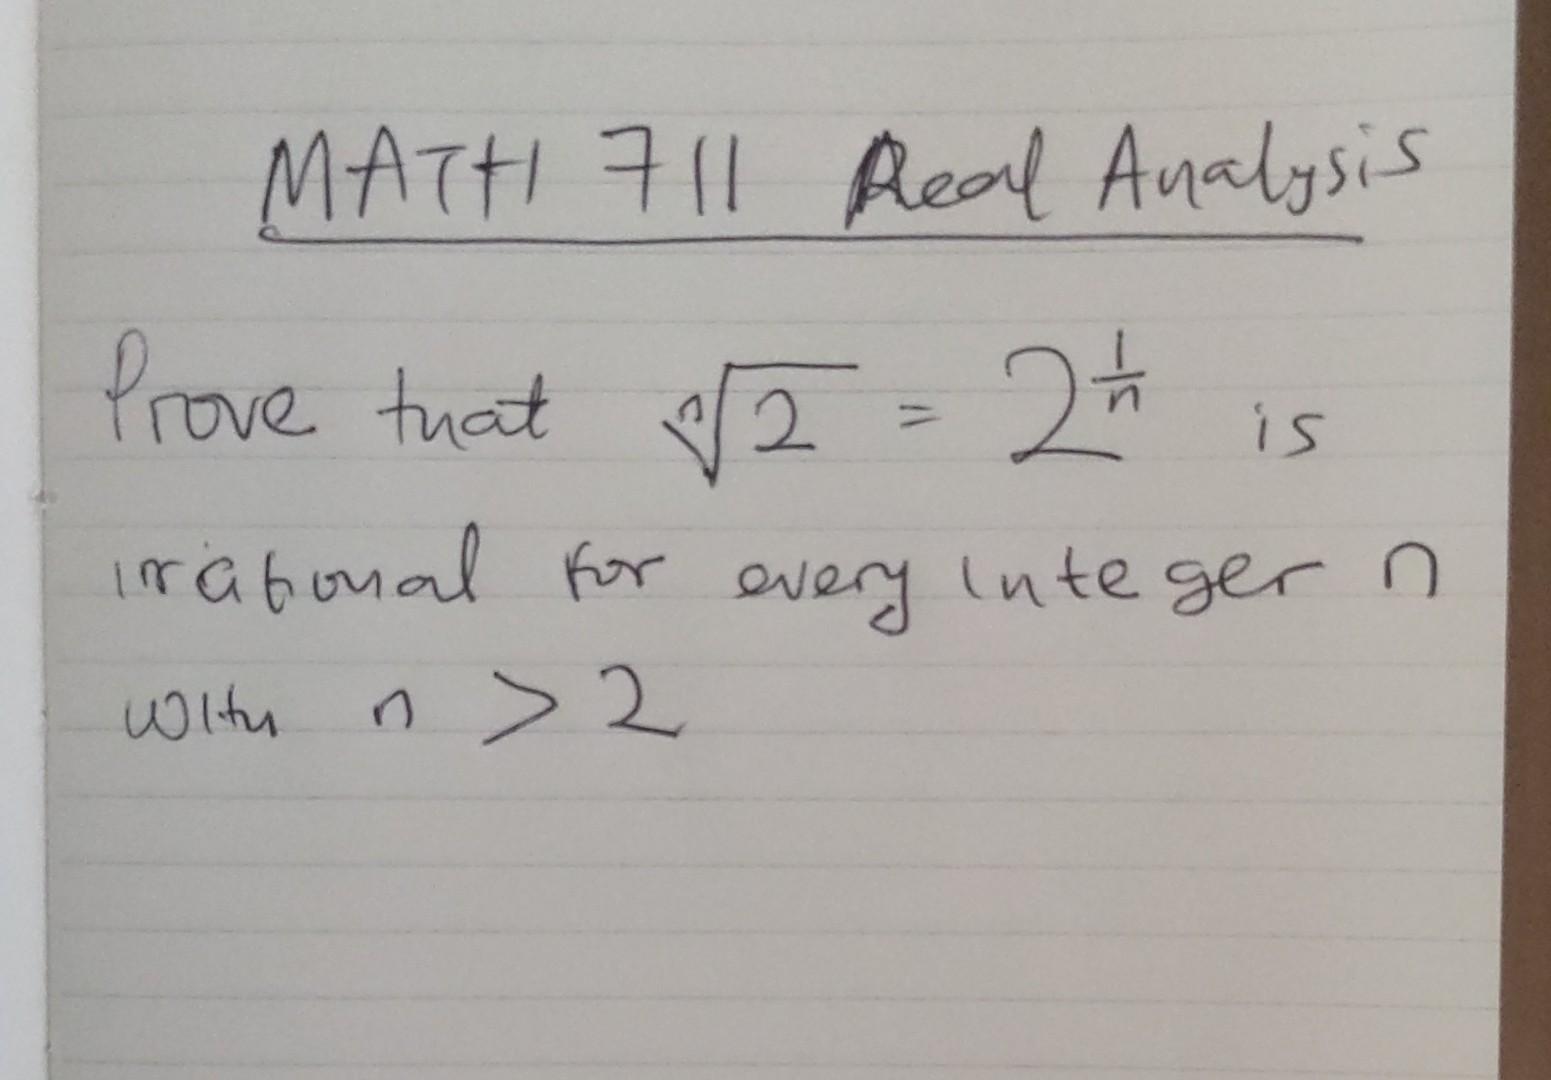 MATH 711 Real Analysis
Prove that ⁿ√2 = 2^(1/n) is
irrational for every integer n
with n > 2